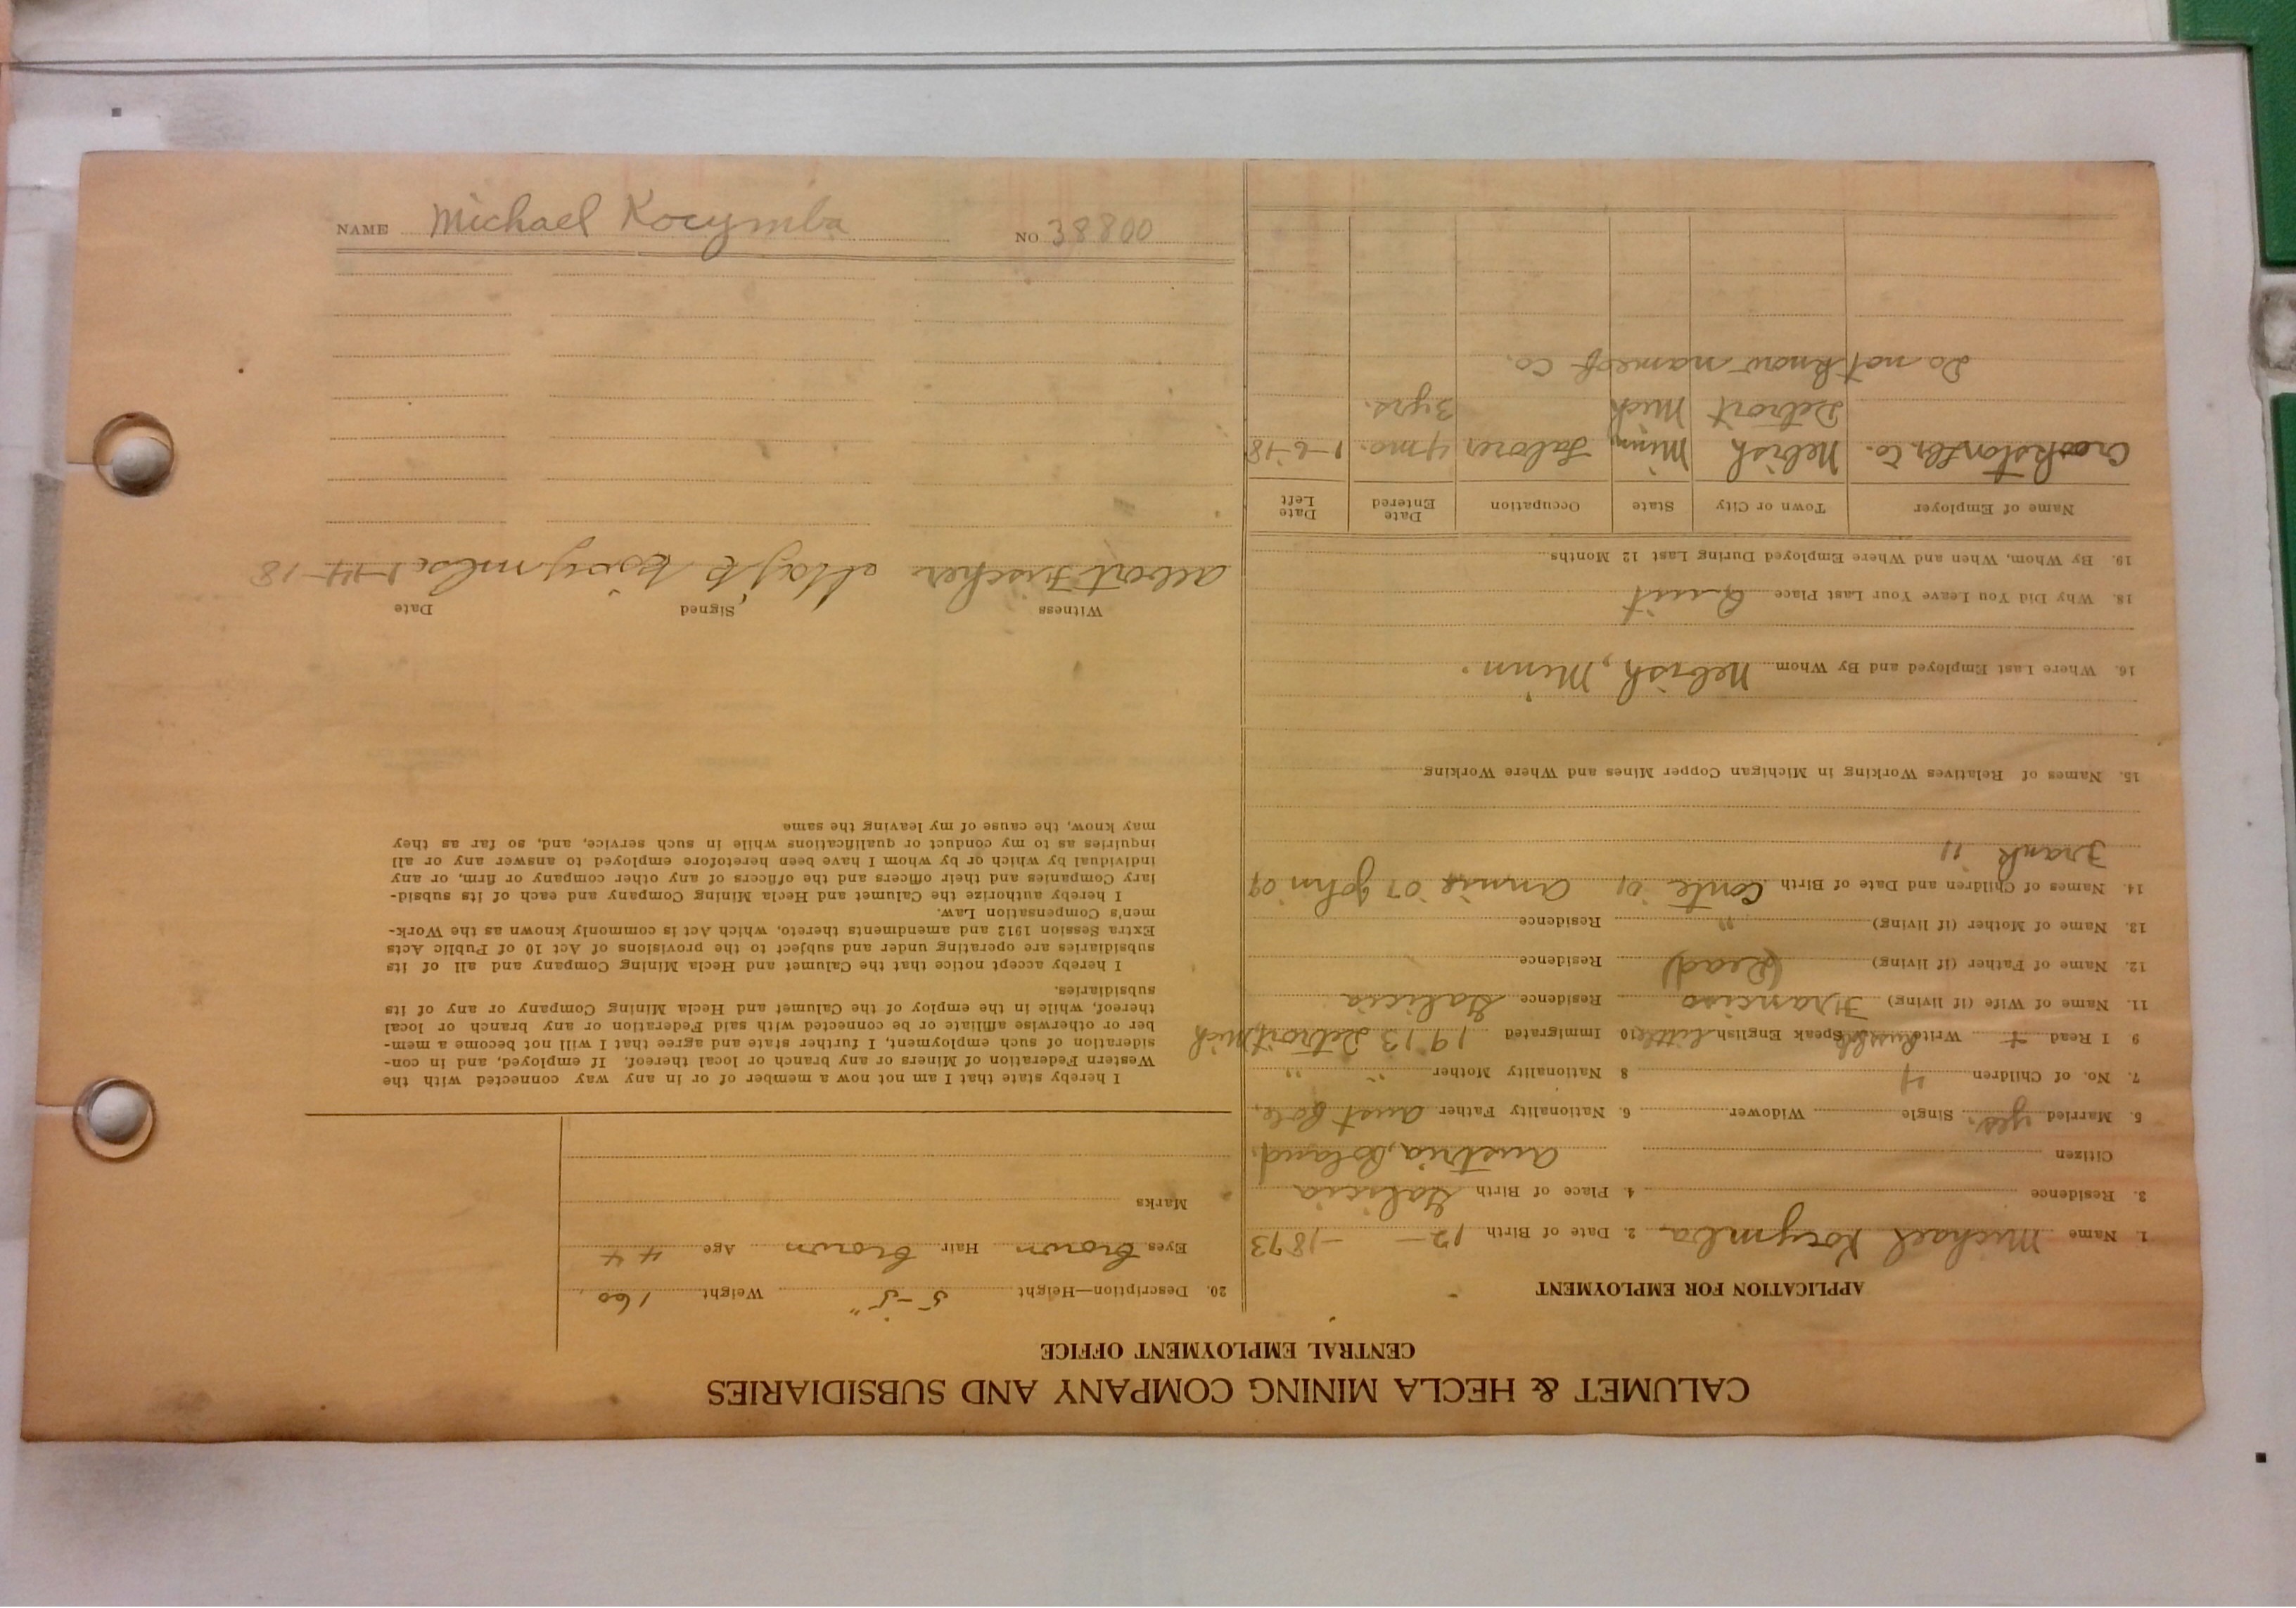 CALUMET & HECLA MINING COMPANY AND SUBSIDIARIES
CENTRAL EMPLOYMENT OFFICE
APPLICATION FOR EMPLOYMENT
1. Name Michael Kocymba 2. Date of Birth 12 - - 1873
3. Residence 4. Place of Birth Galicia
Citizen Austria, Poland.
5. Married yes. Single Widower 6. Nationality Father Aust Pole.
7. No. of Children 4 8 Nationality Mother " "
9 I Read + Write Speak English little 10 Immigrated 1913 Detroit, Mich
11. Name of Wife (if living) Residence Galicia
12. Name of Father (if living) (Dead) Residence
13. Name of Mother (if living) " Residence
14. Names of Children and Date of Birth '01 Annie '07 John '09
Frank '11
15. Names of Relatives Working in Michigan Copper Mines and Where Working
16. Where Last Employed and By Whom Nebish, Minn.
18. Why Did You Leave Your Last Place Quit
19. By Whom, When and Where Employed During Last 12 Months
Name of Employer Town or City State Occupation Date Entered Date Left
Crookston Lbr. Co. Nebish Minn Laborer 4 mo. 1-6-18
Detroit Mich 3 yrs.
Do not know name of Co.
20. Description—Height 5-5" Weight 160
Eyes brown Hair brown Age 44
Marks
I hereby state that I am not now a member of or in any way connected with the
Western Federation of Miners or any branch or local thereof. If employed, and in con-
sideration of such employment, I further state and agree that I will not become a mem-
ber or otherwise affiliate or be connected with said Federation or any branch or local
thereof, while in the employ of the Calumet and Hecla Mining Company or any of its
subsidiaries.
I hereby accept notice that the Calumet and Hecla Mining Company and all of its
subsidiaries are operating under and subject to the provisions of Act 10 of Public Acts
Extra Session 1912 and amendments thereto, which Act is commonly known as the Work-
men's Compensation Law.
I hereby authorize the Calumet and Hecla Mining Company and each of its subsid-
iary Companies and their officers and the officers of any other company or firm, or any
individual by which or by whom I have been heretofore employed to answer any or all
inquiries as to my conduct or qualifications while in such service, and, so far as they
may know, the cause of my leaving the same
Witness Signed Date
Albert Fischer 1-14-18
NAME Michael Kocymba NO 38800